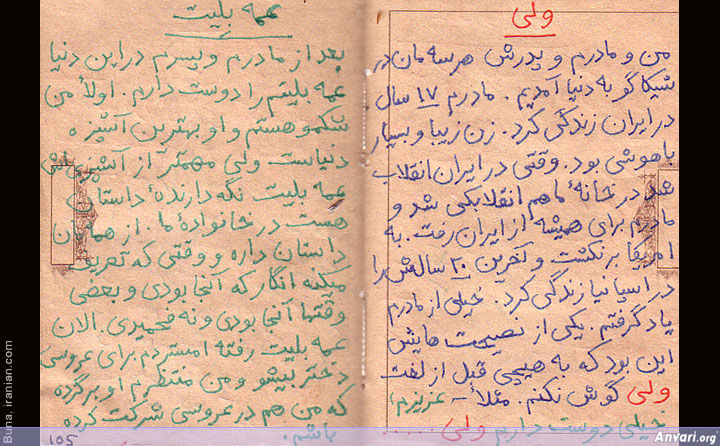 ولی
من و مادرم و پدرش هر سه مان در
شیکاگو به دنیا آمدیم. مادرم ۱۷ سال
در ایران زندگی کرد. زن زیبا و بسیار
باهوشی بود. وقتی در ایران انقلاب
شد در خانهٔ ما هم انقلابکی شد و
مادرم برای همیشه از ایران رفت. به
امریکا برنگشت و آخرین ۲۰ سالش را
در اسپانیا زندگی کرد. خیلی از مادرم
یاد گرفتم. یکی از نصیحت هایش
این بود که به هیچی قبل از لغت
ولی گوش نکنم. مثلاً - عزیزم،
خیلی دوست دارم ولی
عمه بلیت
بعد از مادرم و پسرم در این دنیا
عمه بلیتم را دوست دارم. اولاً من
شکمو هستم و او بهترین آشپز ه
دنیاست. ولی مهمتر از آشپزی ش
عمه بلیت نگه دارندهٔ داستان
هست در خانوادهٔ ما. از همه مان
داستان داره و وقتی که تعریف
میکنه انگار که آنجا بودی و بعضی
وقتها آنجا بودی و نه فحمیدی. الان
عمه بلیت رفته امستردم برای عروسی
دختر بیشو و من منتظرم او برگرده
که من هم در عروسی شرکت کرده
باشم.
105
Buna. iranian.com
Anvari.org